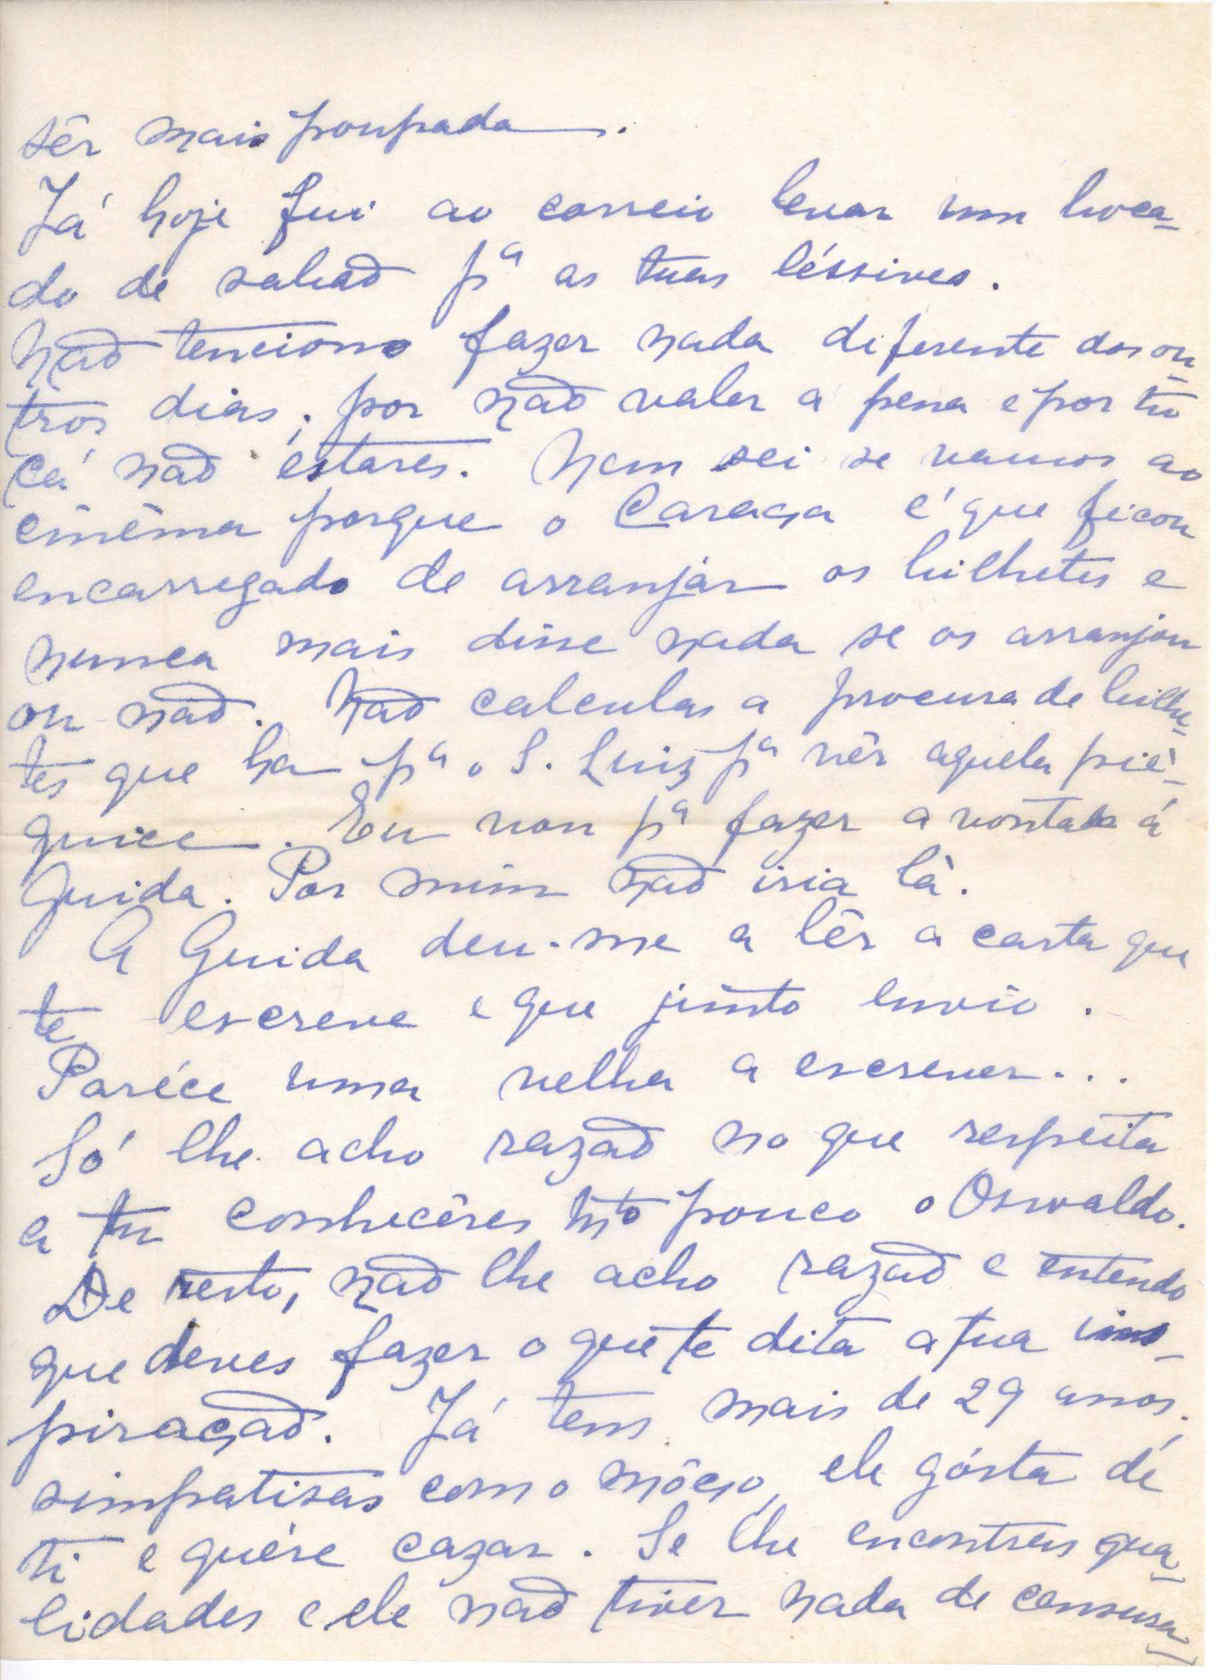 sêr mais poupada.
Já hoje fui ao correio levar um boca-
do de sabaõ pª as tuas léssives.
Naõ tenciono fazer nada diferente dos ou-
tros dias, por naõ valer a pena e por tu
cá naõ éstares. Nem sei se vamos ao
cinêma porque o Caraça é que ficou
encarregado de arranjár os bilhetes e
nunca mais disse nada se os arranjou
ou naõ. Naõ calculas a procura de bilhe-
tes que ha pª o S. Luiz pª vêr aquela piè-
guice. Eu vou pª fazer a vontade á
Guida. Por mim naõ iria lá.
A Guida deu-me a lêr a carta que
te escreve e que junto envio.
Paréce uma velha a escrever...
Só lhe acho razaõ no que respeita
a tu conhecêres mto pouco o Oswaldo.
De resto, naõ lhe acho razaõ e entendo
que deves fazer o que te dita a tua ins-
piraçaõ. Já tens mais de 29 anos,
simpatisas com o môço, ele gósta de
ti e quére cazar. Se lhe encontras qua-
lidades e ele naõ tiver nada de censura-